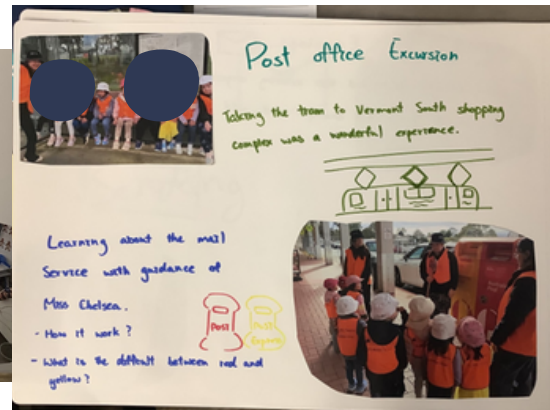 Post office Excursion
Taking the tram to Vermont South shopping
complex was a wonderful experience.
Learning about the mail
Service with guidance of
Miss Chelsea.
- How it work?
- What is the diffcult between red and
yellow?
Post
Post
Express